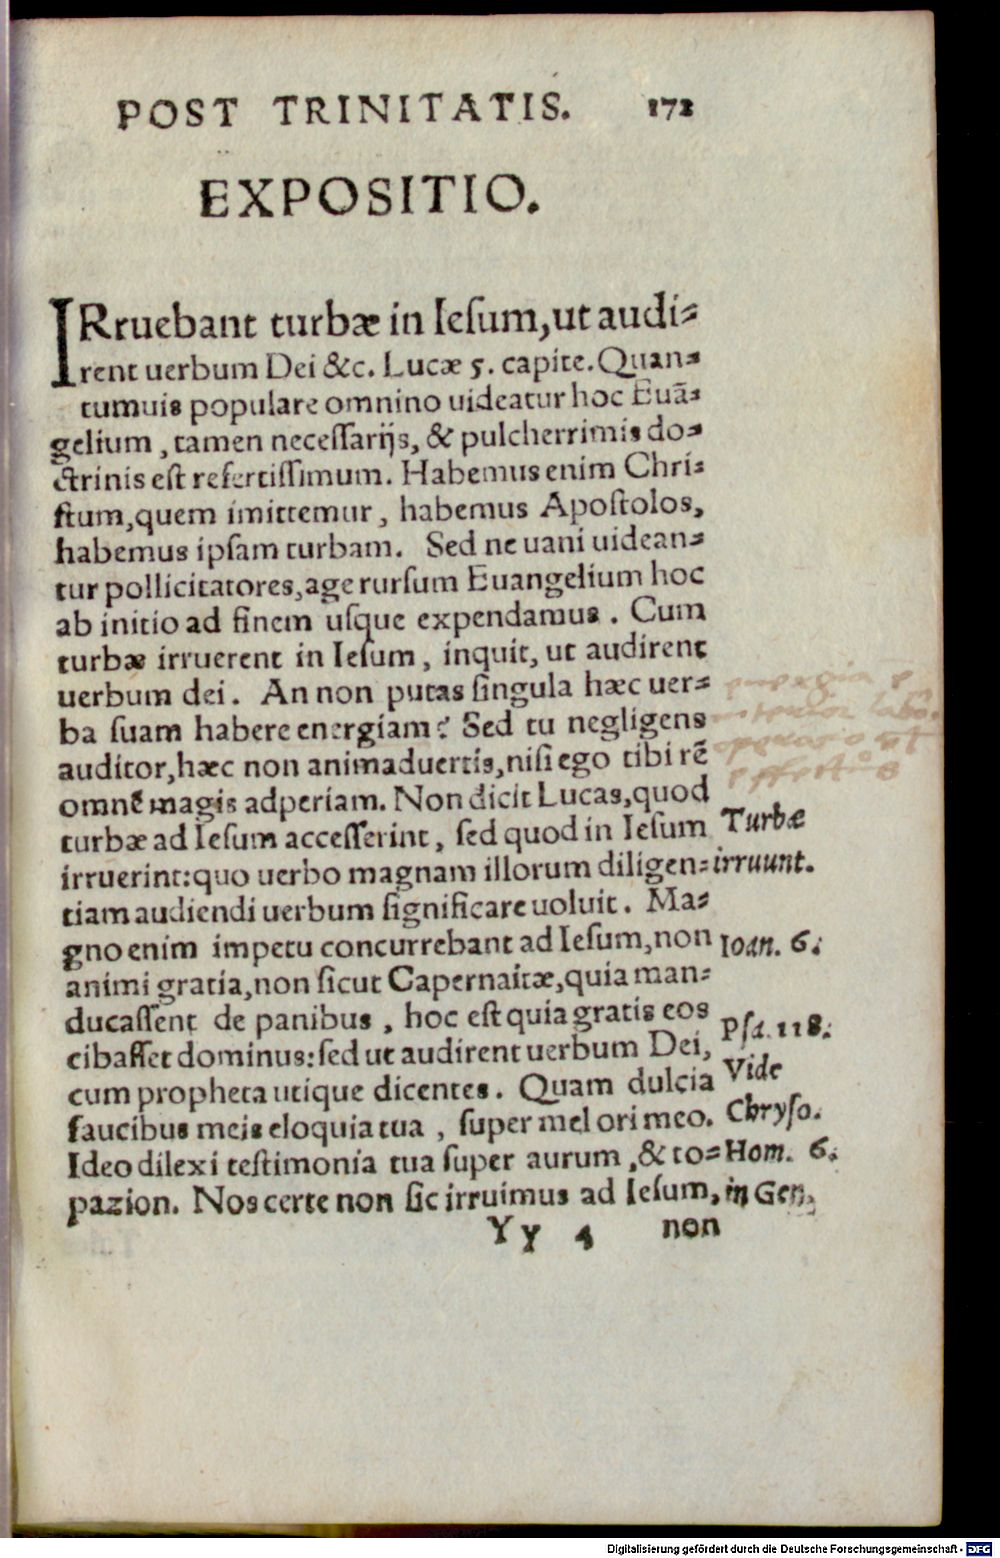 POST TRINITATIS. 172
EXPOSITIO.
IRruebant turbæ in Iesum, ut audi-
rent uerbum Dei &c. Lucæ 5. capite. Quan-
tumuis populare omnino uideatur hoc Euã-
gelium, tamen necessarijs, & pulcherrimis do-
ctrinis est refertissimum. Habemus enim Chri-
stum, quem imittemur, habemus Apostolos,
habemus ipsam turbam. Sed ne uani uidean-
tur pollicitatores, age rursum Euangelium hoc
ab initio ad finem usque expendamus. Cum
turbæ irruerent in Iesum, inquit, ut audirent
uerbum dei. An non putas singula hæc uer-
ba suam habere energiam? Sed tu negligens
auditor, hæc non animaduertis, nisi ego tibi rẽ
omnẽ magis adperiam. Non dicit Lucas, quod
turbæ ad Iesum accesserint, sed quod in Iesum
irruerint: quo uerbo magnam illorum diligen-
tiam audiendi uerbum significare uoluit. Ma-
gno enim impetu concurrebant ad Iesum, non
animi gratia, non sicut Capernaitæ, quia man-
ducassent de panibus, hoc est quia gratis eos
cibasset dominus: sed ut audirent uerbum Dei,
cum propheta utique dicentes. Quam dulcia
faucibus meis eloquia tua, super mel ori meo.
Ideo dilexi testimonia tua super aurum, & to-
pazion. Nos certe non sic irruimus ad Iesum,
Yy 4 non
energia
Turbæ
irruunt.
Ioan. 6.
Psa. 118.
Vide
Chryso.
Hom. 6.
in Gen.
Digitalisierung gefördert durch die Deutsche Forschungsgemeinschaft - DFG